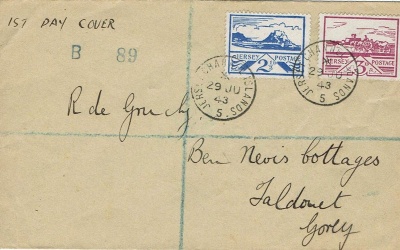 1ST DAY COVER
B 89
JERSEY POSTAGE
2½D
JERSEY POSTAGE
3D
JERSEY CHANNEL ISLANDS
29 JU
43
5
JERSEY CHANNEL ISLANDS
29 JU
43
5
R de Gruchy
Ben Nevis Cottages
Faldouet
Gorey